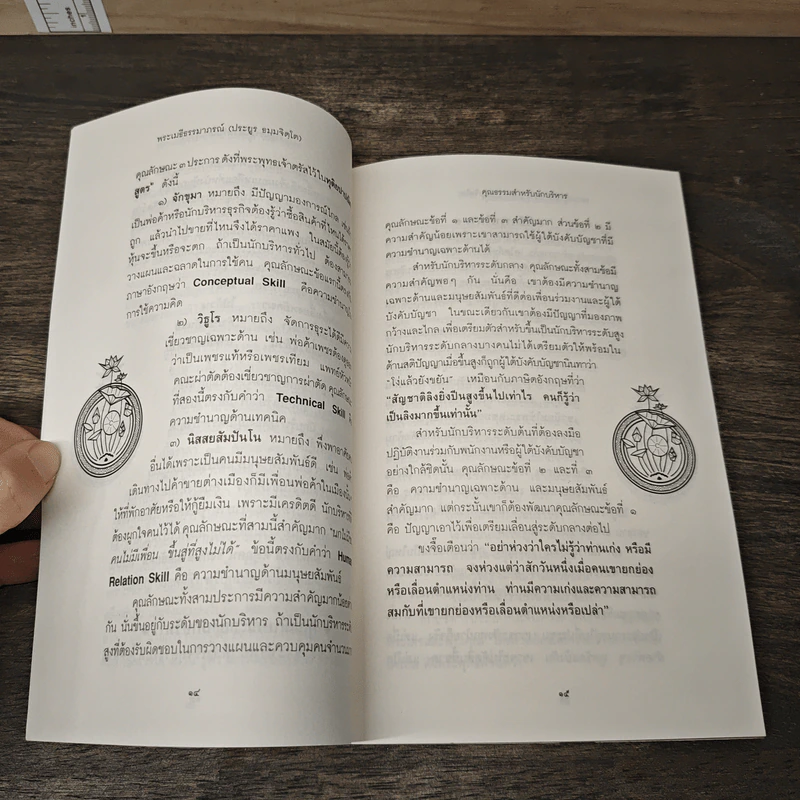 inches
พระเมธีธรรมาภรณ์ (ประยูร ธมฺมจิตฺโต)
คุณลักษณะ ๓ ประการ ดังที่พระพุทธเจ้าตรัสไว้ใน
สูตร" ดังนี้
๑) จักขุมา หมายถึง มีปัญญามองการณ์ไกล เช่น
เป็นพ่อค้าหรือนักบริหารธุรกิจต้องรู้ว่าซื้อสินค้าที่ไหนได้
ถูก แล้วนำไปขายที่ไหนจึงได้ราคาแพง ในสมัยนี้ต้องรู้
หุ้นจะขึ้นหรือจะตก ถ้าเป็นนักบริหารทั่วไป ต้อง
วางแผนและฉลาดในการใช้คน คุณลักษณะข้อแรกนี้
ภาษาอังกฤษว่า Conceptual Skill คือความชำนาญ
การใช้ความคิด
๒) วิธูโร หมายถึง จัดการธุระได้ดี
เชี่ยวชาญเฉพาะด้าน เช่น พ่อค้าเพชรต้อง
ว่าเป็นเพชรแท้หรือเพชรเทียม แพทย์หัวหน้า
คณะผ่าตัดต้องเชี่ยวชาญการผ่าตัด คุณลักษณะ
ที่สองนี้ตรงกับคำว่า Technical Skill
ความชำนาญด้านเทคนิค
๓) นิสสยสัมปันโน หมายถึง พึ่งพาอาศัย
อื่นได้เพราะเป็นคนมีมนุษยสัมพันธ์ดี เช่น
เดินทางไปค้าขายต่างเมืองก็มีเพื่อนพ่อค้าในเมือง
ให้ที่พักอาศัยหรือให้กู้ยืมเงิน เพราะมีเครดิตดี นักบริหาร
ต้องผูกใจคนไว้ได้ คุณลักษณะที่สามนี้สำคัญมาก "นกไม่มี
คนไม่มีเพื่อน ขึ้นสู่ที่สูงไม่ได้" ข้อนี้ตรงกับคำว่า Human
Relation Skill คือ ความชำนาญด้านมนุษยสัมพันธ์
คุณลักษณะทั้งสามประการมีความสำคัญมากน้อย
กัน นั่นขึ้นอยู่กับระดับของนักบริหาร ถ้าเป็นนักบริหารระดับ
สูงที่ต้องรับผิดชอบในการวางแผนและควบคุมคนจำนวนมาก
๑๔
คุณธรรมสำหรับนักบริหาร
คุณลักษณะข้อที่ ๑ และข้อที่ ๓ สำคัญมาก ส่วนข้อที่ ๒ มี
ความสำคัญน้อยเพราะเขาสามารถใช้ผู้ใต้บังคับบัญชาที่มี
ความชำนาญเฉพาะด้านได้
สำหรับนักบริหารระดับกลาง คุณลักษณะทั้งสามข้อมี
ความสำคัญพอๆ กัน นั่นคือ เขาต้องมีความชำนาญ
เฉพาะด้านและมนุษยสัมพันธ์ที่ดีต่อเพื่อนร่วมงานและผู้ใต้
บังคับบัญชา ในขณะเดียวกันเขาต้องมีปัญญาที่มองภาพ
กว้างและไกล เพื่อเตรียมตัวสำหรับขึ้นเป็นนักบริหารระดับสูง
นักบริหารระดับกลางบางคนไม่ได้เตรียมตัวให้พร้อมใน
ด้านสติปัญญาเมื่อขึ้นสูงก็ถูกผู้ใต้บังคับบัญชานินทาว่า
"โง่แล้วยังขยัน" เหมือนกับภาษิตอังกฤษที่ว่า
"สัญชาติลิงยิ่งปีนสูงขึ้นไปเท่าไร คนก็รู้ว่า
เป็นลิงมากขึ้นเท่านั้น"
สำหรับนักบริหารระดับต้นที่ต้องลงมือ
ปฏิบัติงานร่วมกับพนักงานหรือผู้ใต้บังคับบัญชา
อย่างใกล้ชิดนั้น คุณลักษณะข้อที่ ๒ และที่ ๓
คือ ความชำนาญเฉพาะด้าน และมนุษยสัมพันธ์
สำคัญมาก แต่กระนั้นเขาก็ต้องพัฒนาคุณลักษณะข้อที่ ๑
คือ ปัญญาเอาไว้เพื่อเตรียมเลื่อนสู่ระดับกลางต่อไป
ขงจื๊อเตือนว่า "อย่าห่วงว่าใครไม่รู้ว่าท่านเก่ง หรือมี
ความสามารถ จงห่วงแต่ว่าสักวันหนึ่งเมื่อคนเขายกย่อง
หรือเลื่อนตำแหน่งท่าน ท่านมีความเก่งและความสามารถ
สมกับที่เขายกย่องหรือเลื่อนตำแหน่งหรือเปล่า"
๑๕